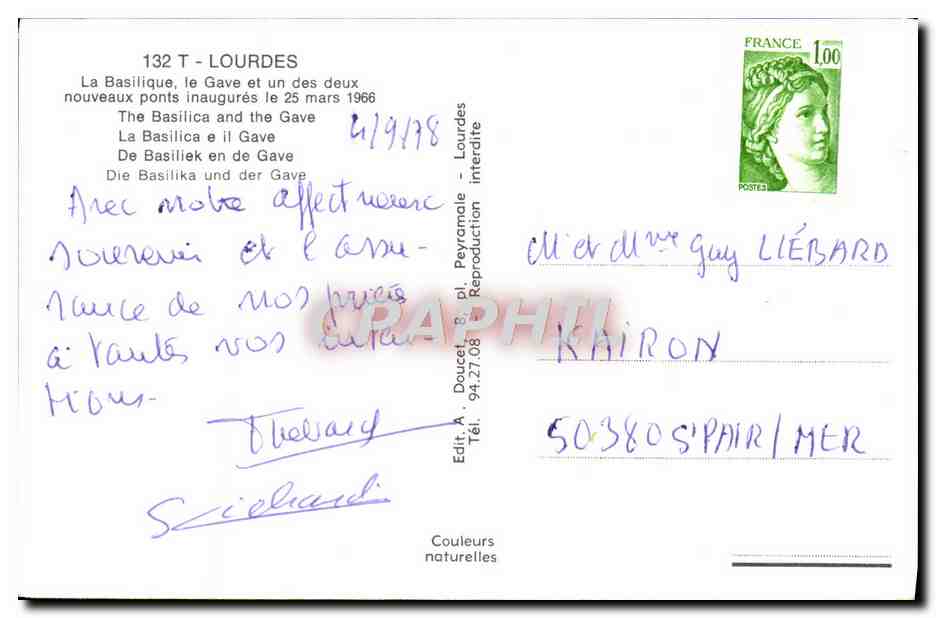 132 T - LOURDES
La Basilique, le Gave et un des deux
nouveaux ponts inaugurés le 25 mars 1966
The Basilica and the Gave
La Basilica e il Gave
De Basiliek en de Gave
Die Basilika und der Gave
4/9/78
Avec notre affectueux
souvenir et l'assu-
rance de nos prières
à toutes vos inten-
tions.
Edit. A. Doucet, 8, pl. Peyramale - Lourdes
Tél. 94.27.08 - Reproduction interdite
Couleurs
naturelles
FRANCE 1,00
POSTES
Mr et Mme Guy LIÉBARD
KAIRON
50380 St PAIR/MER
CPAPHIL